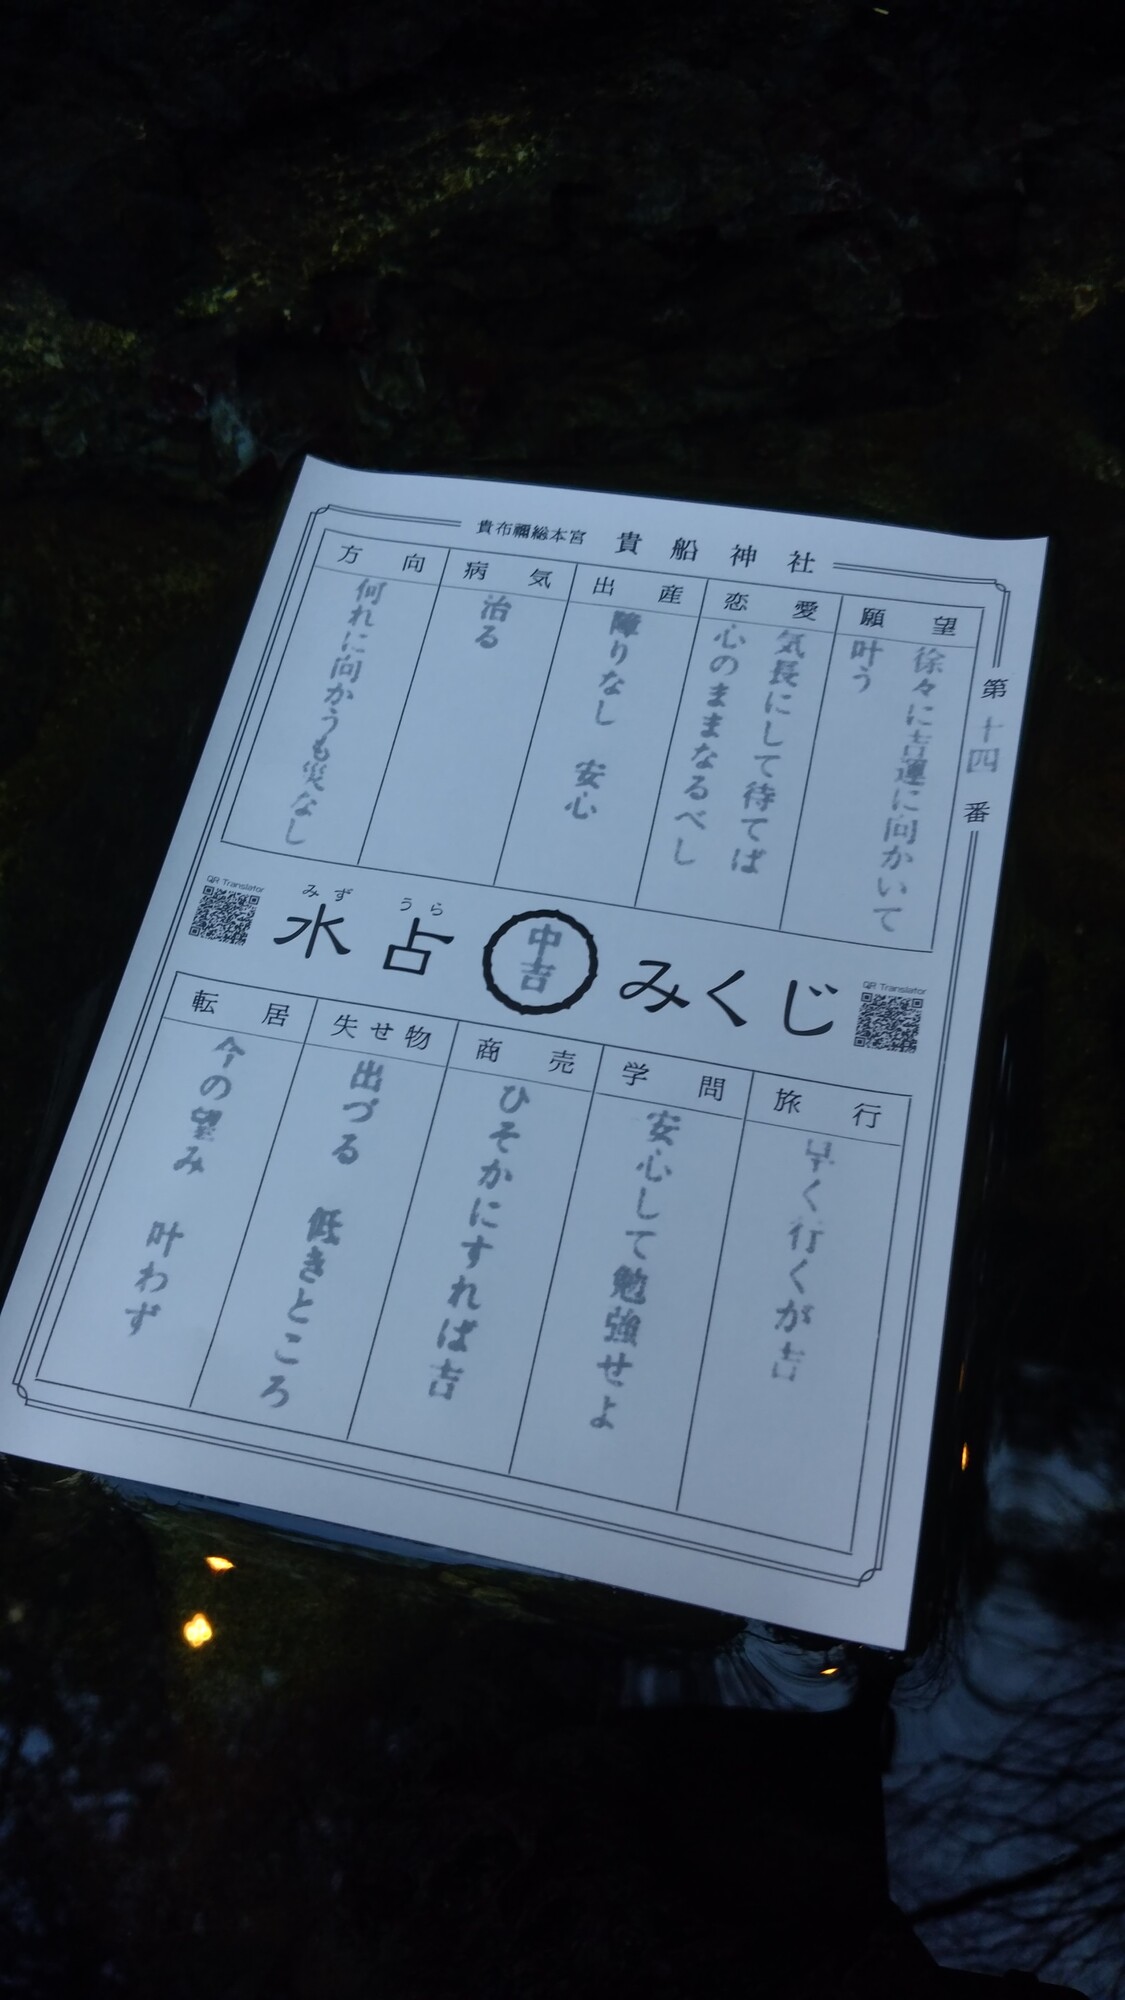 貴布禰総本宮 貴船神社
第十四番
願望
徐々に吉運に向かいて
叶う
恋愛
気長にして待てば
心のままなるべし
出産
障りなし 安心
病気
治る
方向
何れに向かうも災なし
QR Translator
みず うら
水占 中吉 みくじ
QR Translator
旅行
早く行くが吉
学問
安心して勉強せよ
商売
ひそかにすれば吉
失せ物
出づる 低きところ
転居
今の望み 叶わず